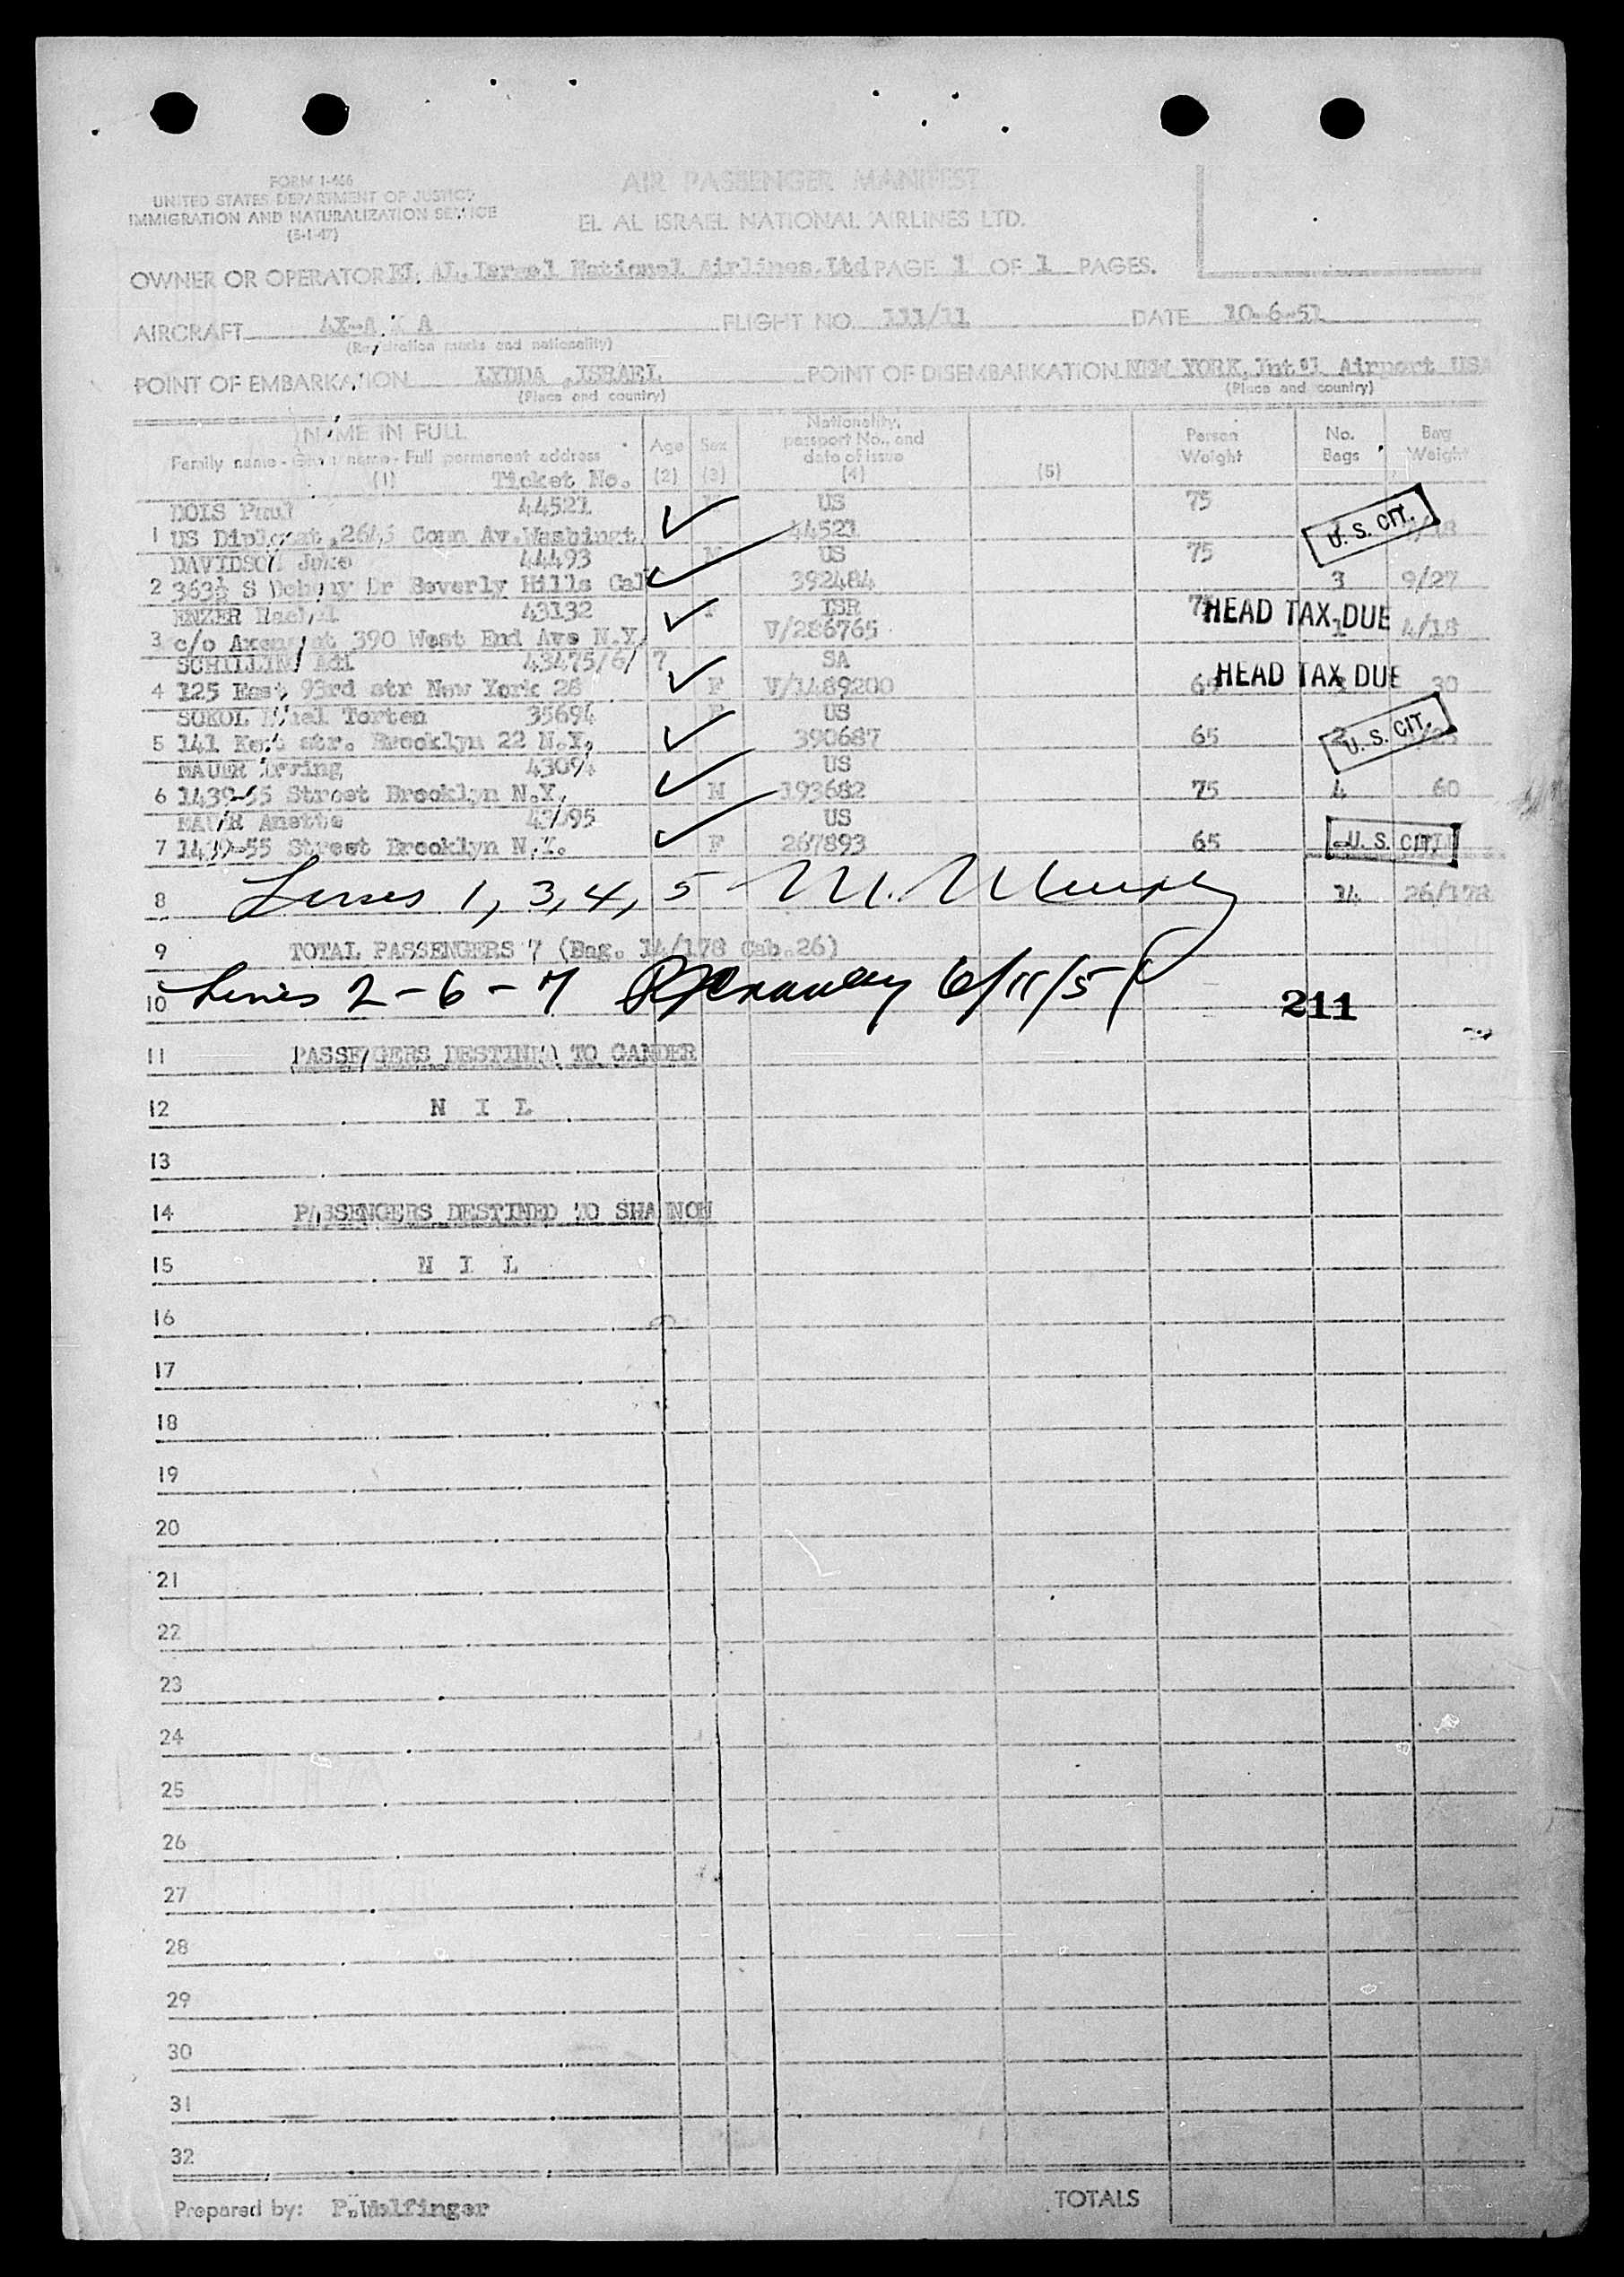 FORM I-466
UNITED STATES DEPARTMENT OF JUSTICE
IMMIGRATION AND NATURALIZATION SERVICE
(5-1-47)
AIR PASSENGER MANIFEST
EL AL ISRAEL NATIONAL AIRLINES LTD.
OWNER OR OPERATOR EL AL, Israel National Airlines. Ltd PAGE 1 OF 1 PAGES.
AIRCRAFT 4X-A A FLIGHT NO. 111/11 DATE 10-6-51
(Registration marks and nationality)
POINT OF EMBARKATION LYDDA ,ISRAEL POINT OF DISEMBARKATION NEW YORK, Int'l Airport USA
(Place and country) (Place and country)
NAME IN FULL Age Sex Nationality, passport No., and date of issue Person Weight No. Bags Bag Weight
Family name - Given name - Full permanent address
(1) Ticket No. (2) (3) (4) (5)
Paul 44521 US 75
1 US Diplomat, Conn Av. Washingt. 44521 U. S. CIT.
DAVIDSON 44493 M US 75
2 363½ S Doheny Dr Beverly Hills Cal 392484 3 9/27
ENZER Rachel 43132 F ISR HEAD TAX DUE
3 c/o 390 West End Ave N.Y. V/286765 1 4/18
Adi 43475/6/ 7 SA
4 125 East 93rd str New York 28 F V/1489200 65 HEAD TAX DUE 30
SOKOL Torten 35694 F US
5 141 Kent str. Brooklyn 22 N.Y. 390687 65 2 U. S. CIT.
MAUER Irving 43094 US
6 1439-55 Street Brooklyn N.Y. M 193682 75 4 60
MAUER Anette 43095 US
7 1439-55 Street Brooklyn N.Y. F 267893 65 U. S. CIT.
8 Lines 1, 3, 4, 5 M. Murphy 14 26/178
9 TOTAL PASSENGERS 7 (Bag. 14/178 Cab.26)
10 Lines 2-6-7 6/11/51 211
11 PASSENGERS DESTINED TO GANDER
12 N I L
13
14 PASSENGERS DESTINED TO SHANNON
15 N I L
16
17
18
19
20
21
22
23
24
25
26
27
28
29
30
31
32
Prepared by: P. Wolfinger TOTALS